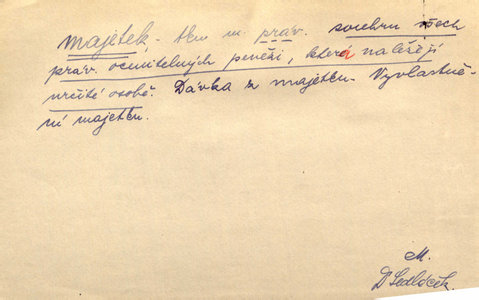 majetek, -tku m. práv. souhrn všech
práv. ocenitelných peněži, která náležejí
určité osobě. Dávka z majetku. Vyvlastně-
ní majetku.
M.
D Sedláček.